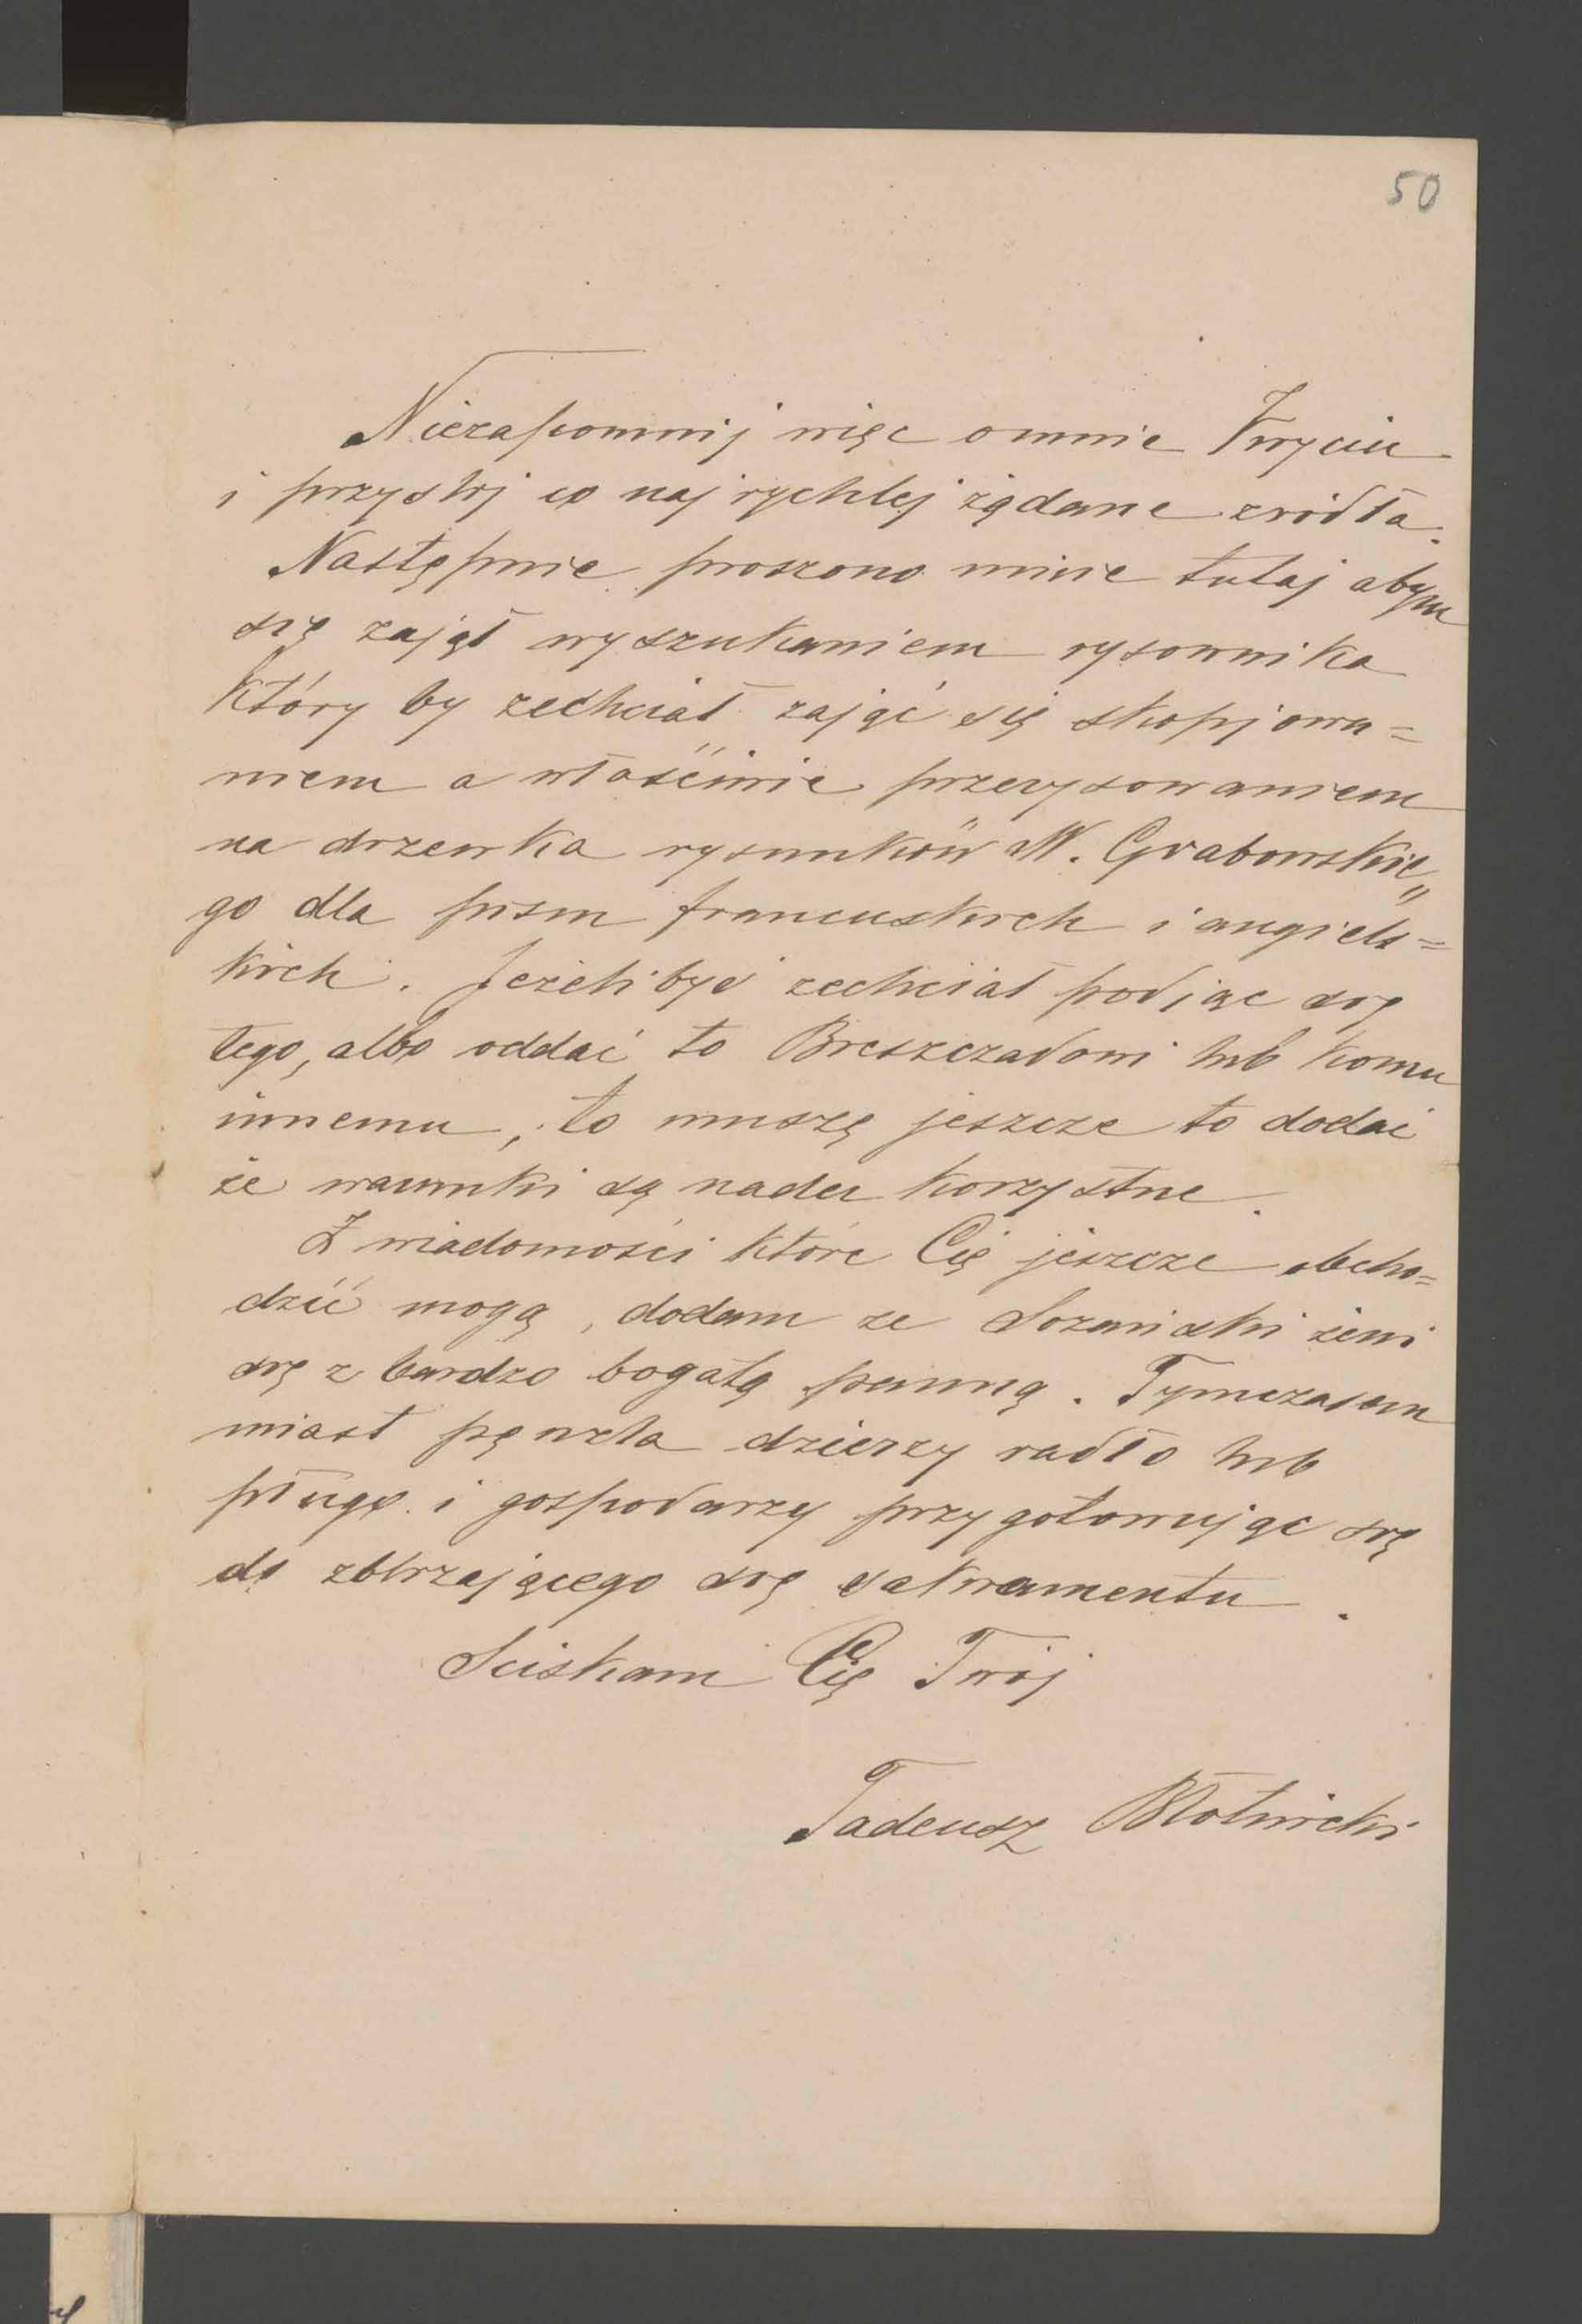 50
Niezapomnij więc omnie Fryciu
i przyslij co naj rychlej żądane zródła.
Następnie proszono mnie tutaj abym
się zajął wyszukaniem rysownika
który by zechciał zająć się skopjowa=
niem a właściwie przerysowaniem
na drzewka rysunków W. Grabowskie„
go dla pism francuskich i angiels=
kich. Jeżelibyś zechciał podjąc się
tego, albo oddać to lub komu
innemu, to muszę jeszcze to dodać
że warunki są nader korzystne.
Z wiadomości które Cię jeszcze obcho=
dzić mogą, dodam ze żeni
się z bardzo bogatą panną. Tymczasem
miast pęnzla dzierzy radło lub
pługo i gospodarzy przygotowując się
do zblizającego się sakramentu.
Sciskam Cię Twój
Tadeusz Błotnicki